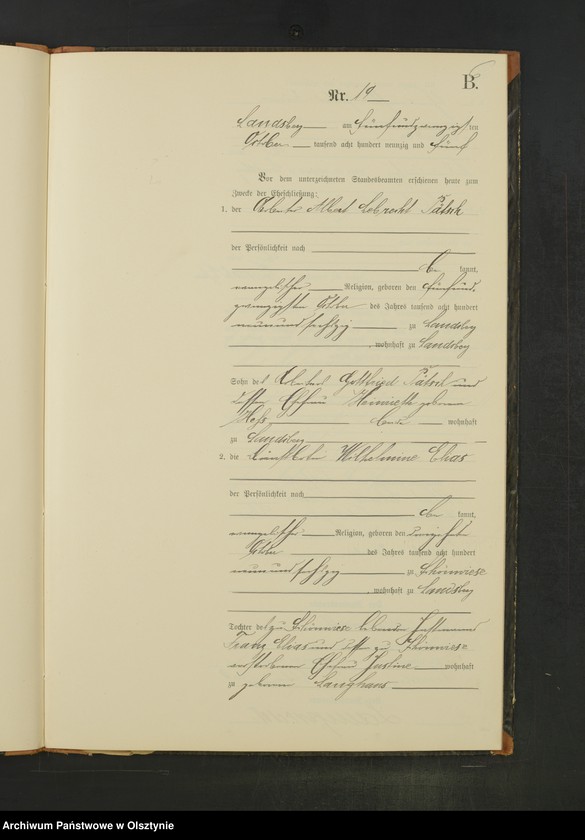 B.
Nr. 19
Landsberg am fünfundzwanzigsten
Oktober tausend acht hundert neunzig und fünf
Vor dem unterzeichneten Standesbeamten erschienen heute zum
Zwecke der Eheschließung:
1. der Arbeiter Albert Lebrecht Pätsch
der Persönlichkeit nach
be kannt,
evangelischer Religion, geboren den fünfund
zwanzigsten Oktober des Jahres tausend acht hundert
neunundsechzig zu Landsberg
, wohnhaft zu Landsberg
Sohn des Arbeiters Gottfried Pätsch und
dessen Ehefrau Henriette geborene
Hess beide wohnhaft
zu Landsberg
2. die Wilhelmine Elias
der Persönlichkeit nach
be kannt,
evangelischer Religion, geboren den
Oktober des Jahres tausend acht hundert
neunundsechzig zu Schönwiese
, wohnhaft zu Landsberg
Tochter des zu Schönwiese lebenden
Franz Elias und dessen zu Schönwiese
verstorbenen Ehefrau Justine wohnhaft
zu geborenen Langhans
Archiwum Państwowe w Olsztynie